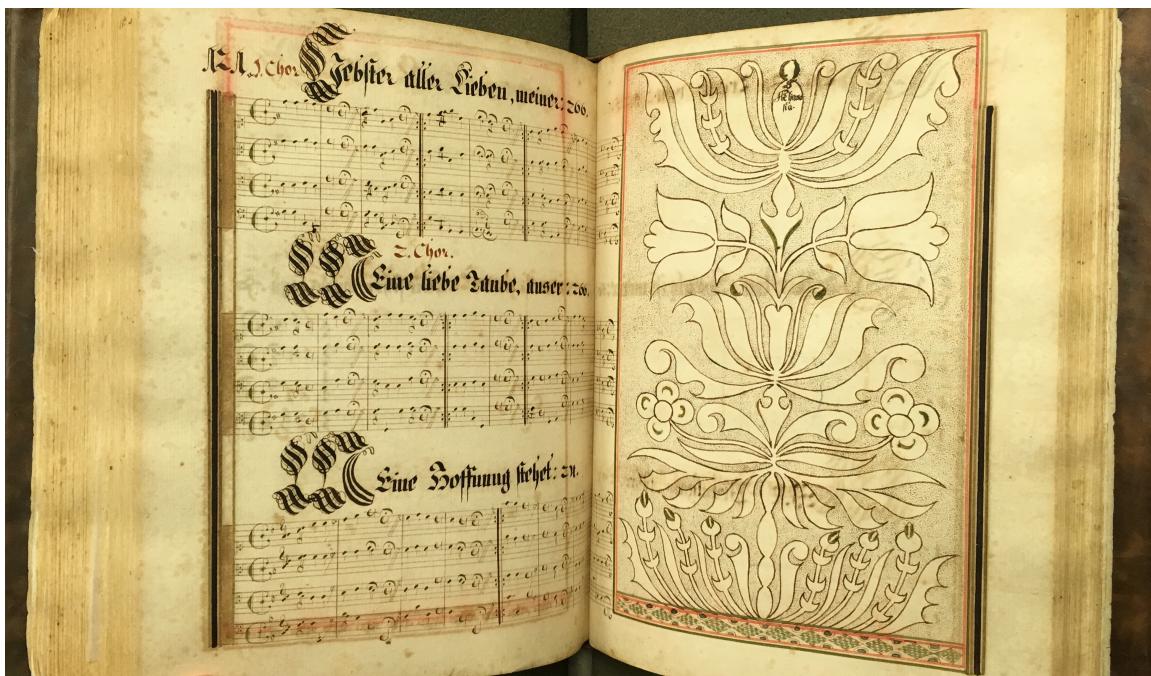 1. Chor
Liebster aller Lieben, meiner: 200.
2. Chor.
Meine liebe Taube, auser: 200.
Meine Hoffnung stehet: 211.